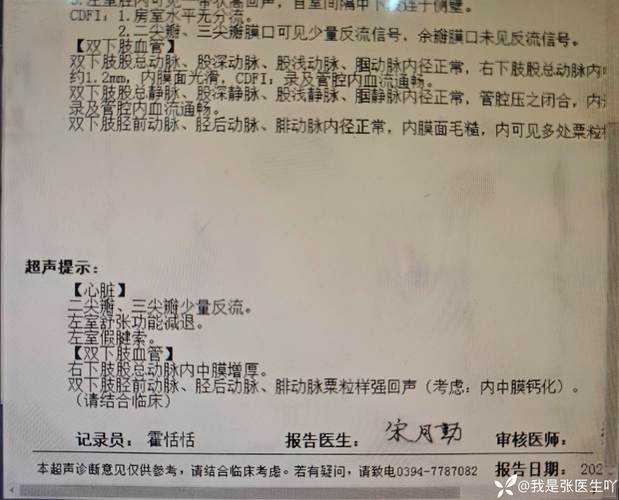 3.左室腔内可见一带状强回声，自室间隔中下
CDFI：1.房室水平无分流。
2.二尖瓣、三尖瓣膜口可见少量反流信号，余瓣膜口未见反流信号。
【双下肢血管】
双下肢股总动脉、股深动脉、股浅动脉、腘动脉内径正常，右下肢股总动脉内
约1.2mm，内膜面光滑，CDFI：录及管腔内血流通畅。
双下肢股总静脉、股深静脉、股浅静脉、腘静脉内径正常，管腔压之闭合，内
录及管腔内血流通畅。
双下肢胫前动脉、胫后动脉、腓动脉内径正常，内膜面毛糙，内可见多处粟粒
超声提示：
【心脏】
二尖瓣、三尖瓣少量反流。
左室舒张功能减退。
左室假腱索。
【双下肢血管】
右下肢股总动脉内中膜增厚。
双下肢胫前动脉、胫后动脉、腓动脉粟粒样强回声（考虑：内中膜钙化）。
（请结合临床）
记录员： 霍恬恬 报告医生： 宋月勤 审核医师：
本超声诊断意见仅供参考，请结合临床考虑。若有疑问，请致电0394-7787082 报告日期： 202
@我是张医生吖